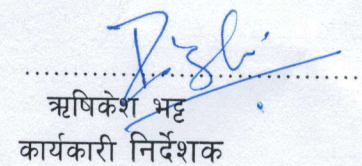 ऋषिकेश भट्ट
कार्यकारी निर्देशक